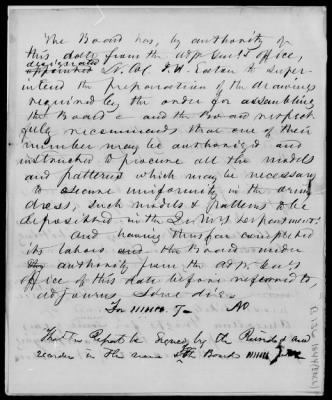 The Board has, by authority of
this date from the Adjt Genl's office,
designated
appointed Lt. Col. J. H. Eaton to super-
intend the preparation of the drawings
required by the order for assembling
the Board & and the Board respect
fully recommends that one of their
number may be authorized and
instructed to procure all the models
and patterns which may be necessary
to secure uniformity in the army
dress, such models & patterns to be
deposited in the Qr Mrs department.
And having thus far completed
its labors and the Board under
authority from the Adjt Genl's
office of this date before referred to,
adjourns Sine die.
For
That the Report be signed by the President and
recorder in the name of the Board